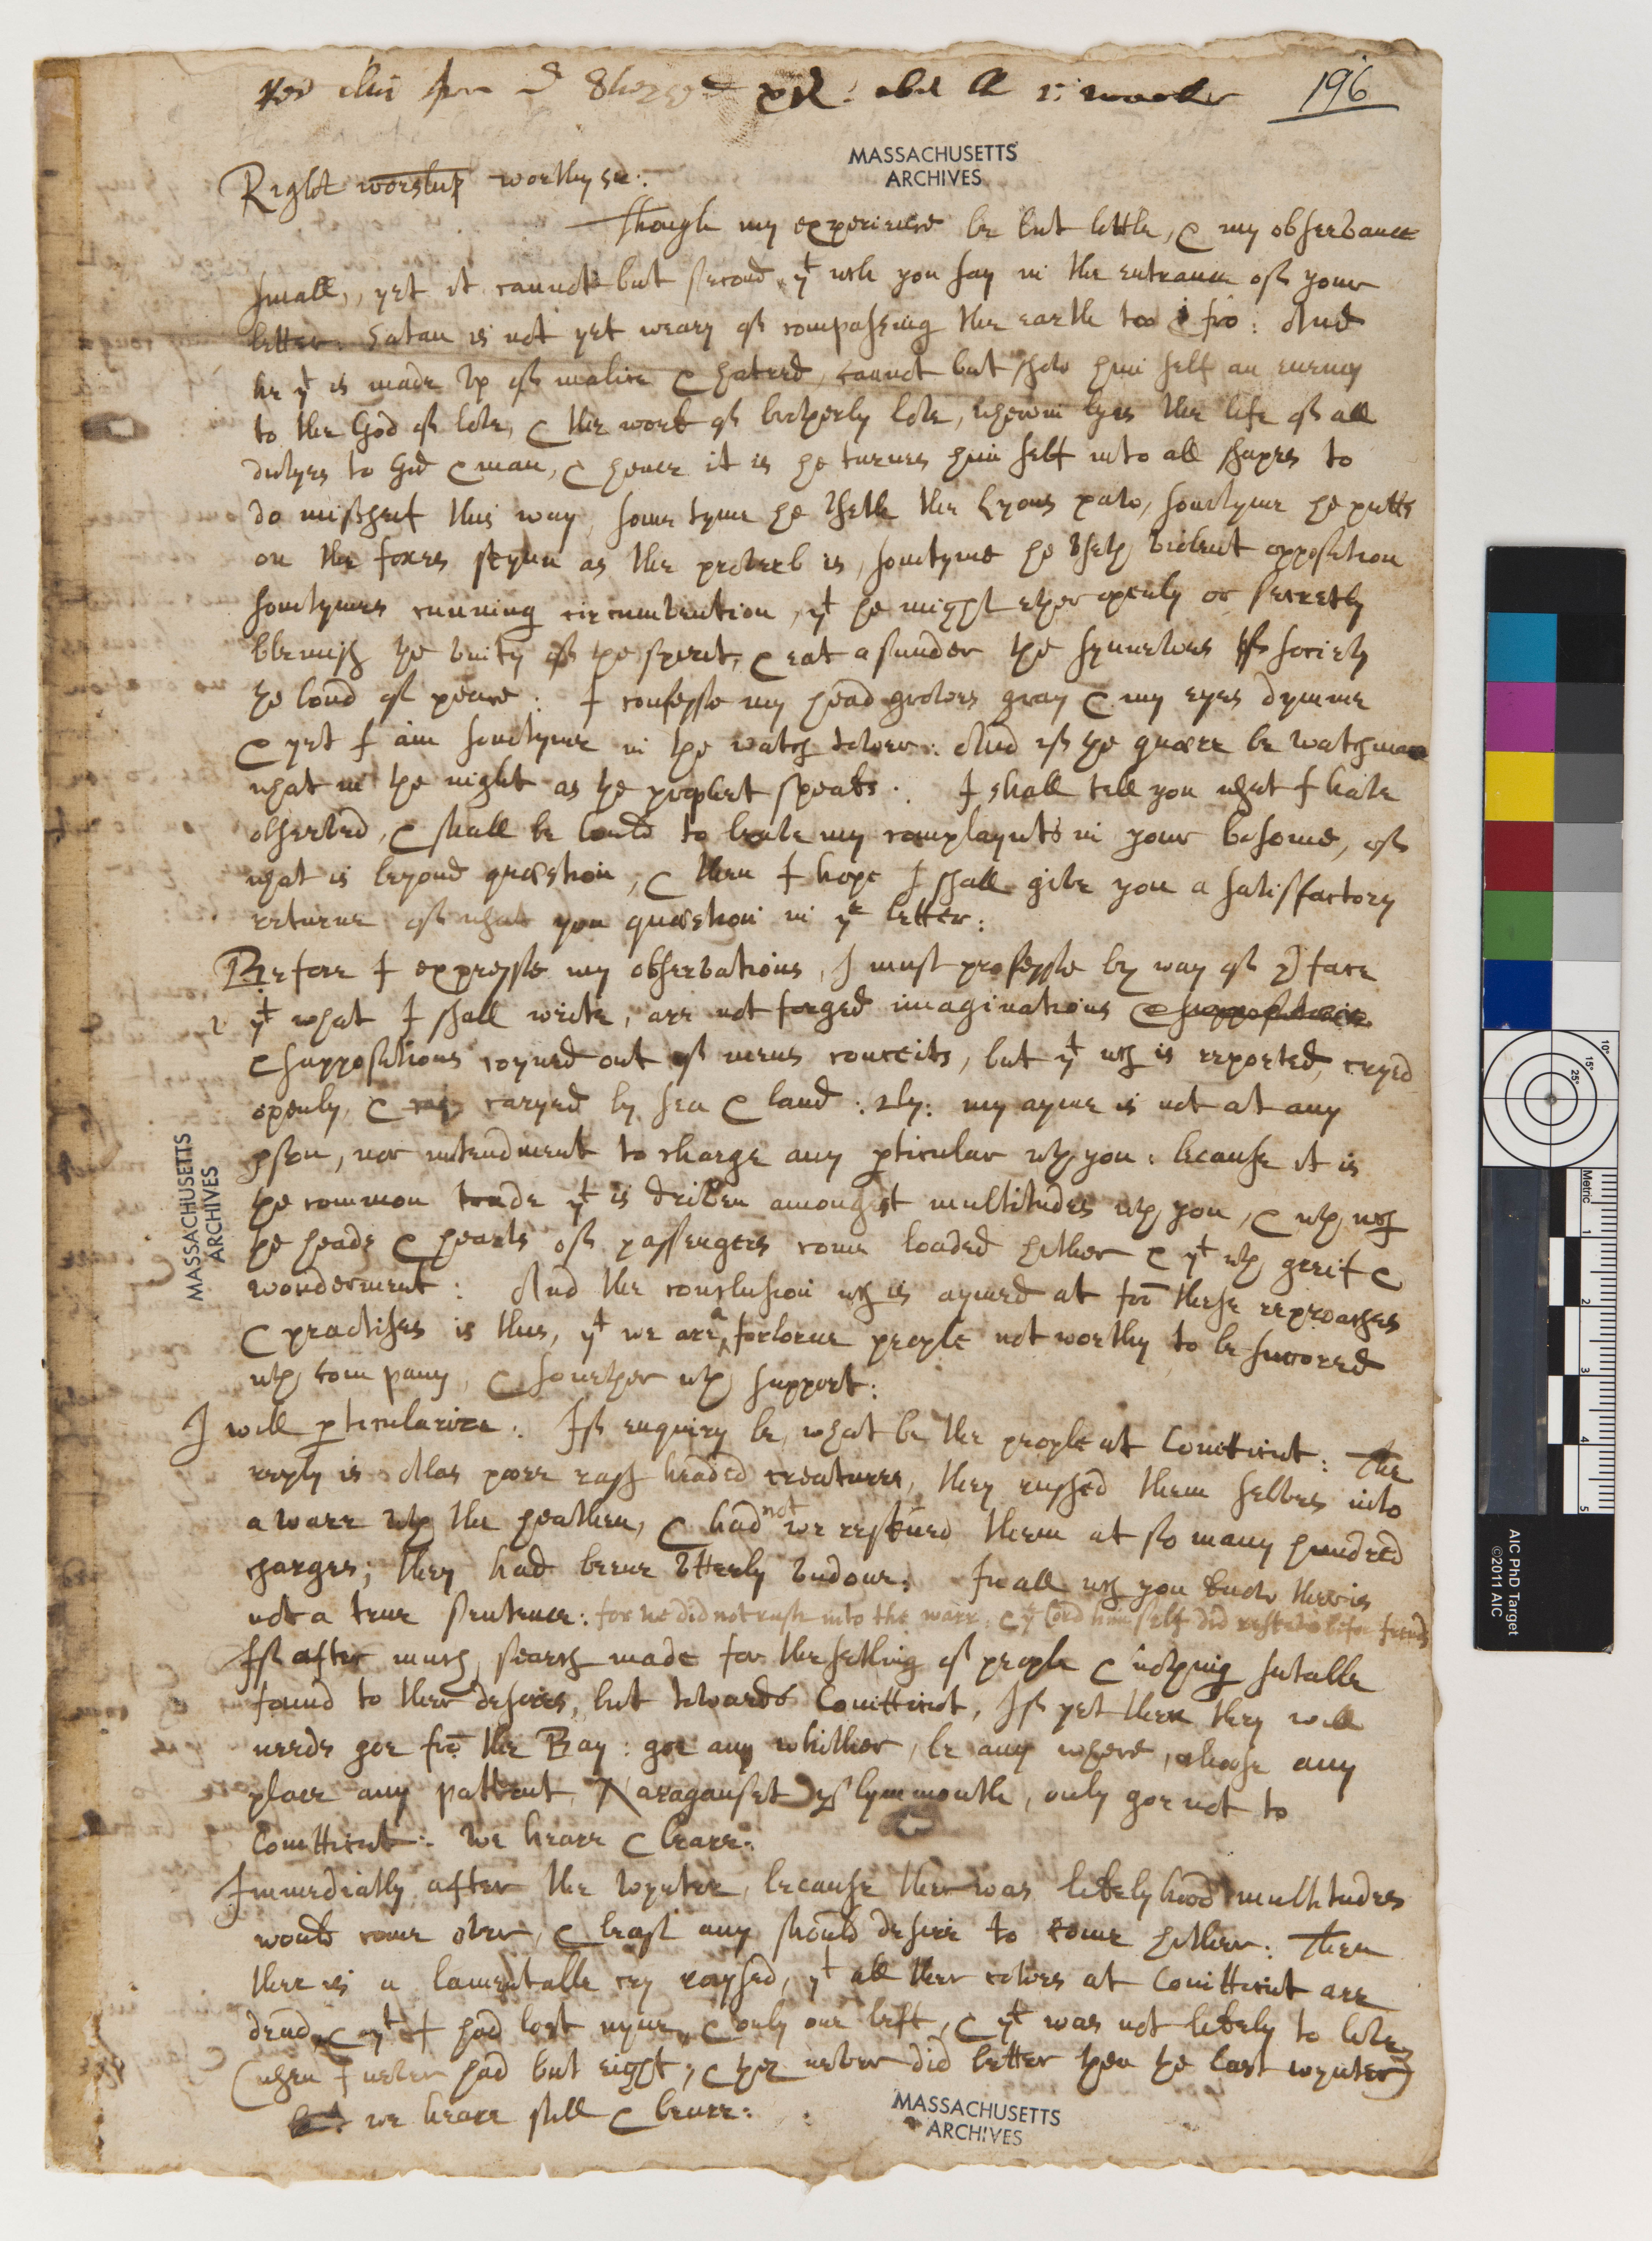 196
MASSACHUSETTS
ARCHIVES
Right worship worthy sr:
Though my experience be but little, & my observance
small, yet it cannot but second yt wch you say in the entrance off your
letter: Satan is not yet weary off compassing the earth too & fro: And
he yt is made up off malice & hatred, cannot but shew him self an enemy
to the God off love, & the work off brotherly love, wherein lyes the life off all
dutyes to God & man, & hence it is he turnes him self into all shapes to
do mischeif this way, some tyme he useth the Lyons paw, somtyme he putts
on the foxes skynn as the proverb is, somtyme he useth violent opposition
somtymes cunning circumvention, yt he might ether openly or secretly
blemish the unity off the spirit, & eat asunder the synnewes off society
the bond off peace: I confesse my head growes gray & my eyes dymme
& yet I am somtyme in the watch tower: And iff the quære be watchman
what in the night as the prophet speaks. I shall tell you what I have
observed, & shall be bould to leave my complaynts in your bosome, off
what is beyond quæstion, & then I hope I shall give you a satisfactory
returne off what you quæstion in yr letter:
Before I expresse my observations, I must professe by way off pface
1 yt what I shall write, are not forged imaginations & suppositions
& suppositions coyned out off mens conceits, but yt wch is reported, cryed
openly, & caryed by sea & land: 2ly: my ayme is not at any
pson, nor intendment to charge any pticular wth you: because it is
the common trade yt is driven amongst multitudes wth you, & wth wch
the heads & hearts off passengers come loaded hither & yt wth greif &
wonderment: And the conclusion wch is aymed at frō these reproaches
& practises is this, yt we are a forlorne people not worthy to be succored
wth company, & so nether wth support:
MASSACHUSETTS
ARCHIVES
I will pticularize. Iff enquiry be, what be the people at Conitticut: The
reply is Alas poore rash headed creatures, they rushed them selves into
a warr wth the heathen, & had not we rescued them at so many hundred
charges; they had beene utterly undone: In all wch you know there is
not a true sentence: for we did not rush into the warr. & ye Lord himself did rescue before freinds
Iff after much search made for the setling off people & nothing sutable
found to their desires, but towards Conitticut, Iff yet then they will
needs goe frō the Bay: goe any whither, be any where, choose any
place any pattent, Naraganset Plymmouth, only goe not to
Conitticut: We heare & beare:
Immediatly after the wynter, because ther was likelyhood multitudes
would come over, & least any should desire to come hither: Then
there is a lamentable cry raysed, yt all their cowes at Conitticut are
dead, & yt I had lost nyne, & only one left, & yt was not likely to live
(when I never had but eight, & they never did better then the last wynter)
we heare still & beare:
MASSACHUSETTS
ARCHIVES
10°
15°
25°
Metric
1
2
3
4
5
AIC PhD Target
©2011 AIC